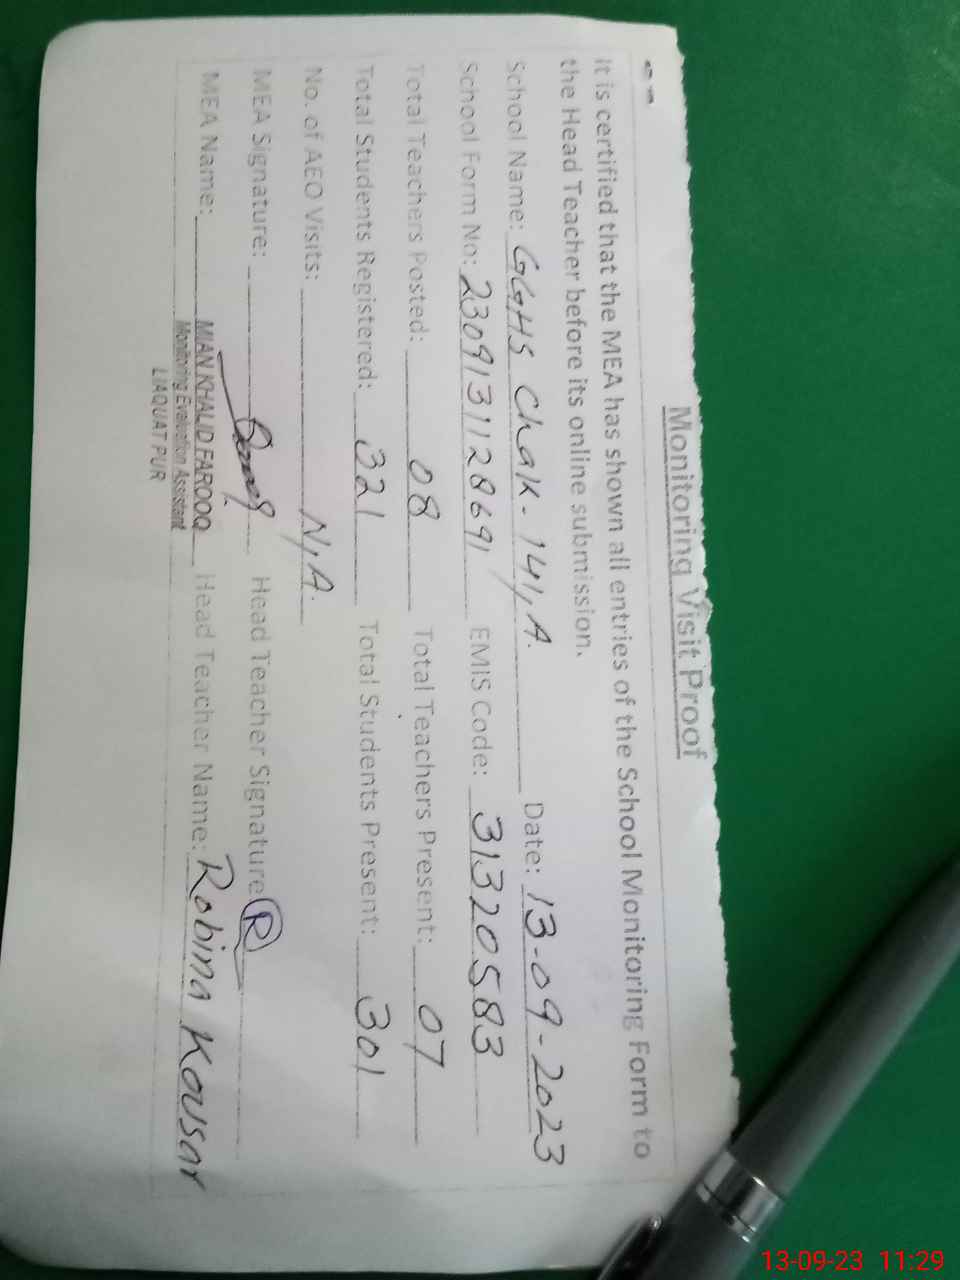 Monitoring Visit Proof
It is certified that the MEA has shown all entries of the School Monitoring Form to
the Head Teacher before its online submission.
School Name: GGHS Chak-141,A. Date: 13-09-2023
School Form No: 2309131128691 EMIS Code: 31320583
Total Teachers Posted: 08 Total Teachers Present: 07
Total Students Registered: 321 Total Students Present: 301
No. of AEO Visits: N,A.
MEA Signature: Head Teacher Signature R
MEA Name: MIAN KHALID FAROOQ Head Teacher Name: Robina Kousar
Monitoring Evaluation Assistant
LIAQUAT PUR
13-09-23 11:29